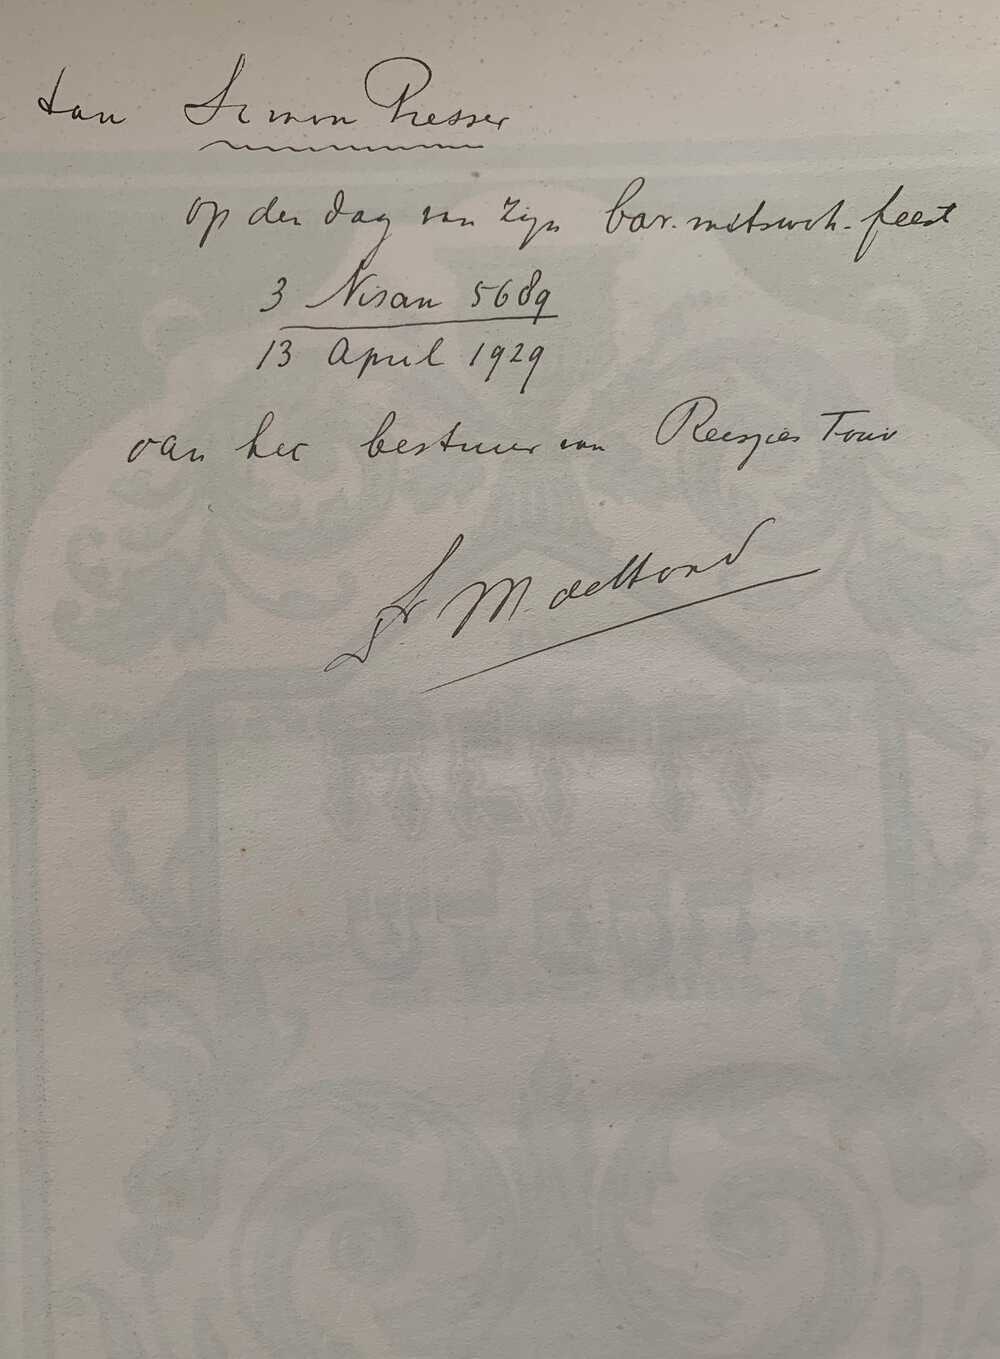 aan Simon Presser
op den dag van zijn bar-mitswoh-feest
3 Nisan 5689
13 April 1929
van het bestuur van Reesjies Touw
Dr M. de Hond